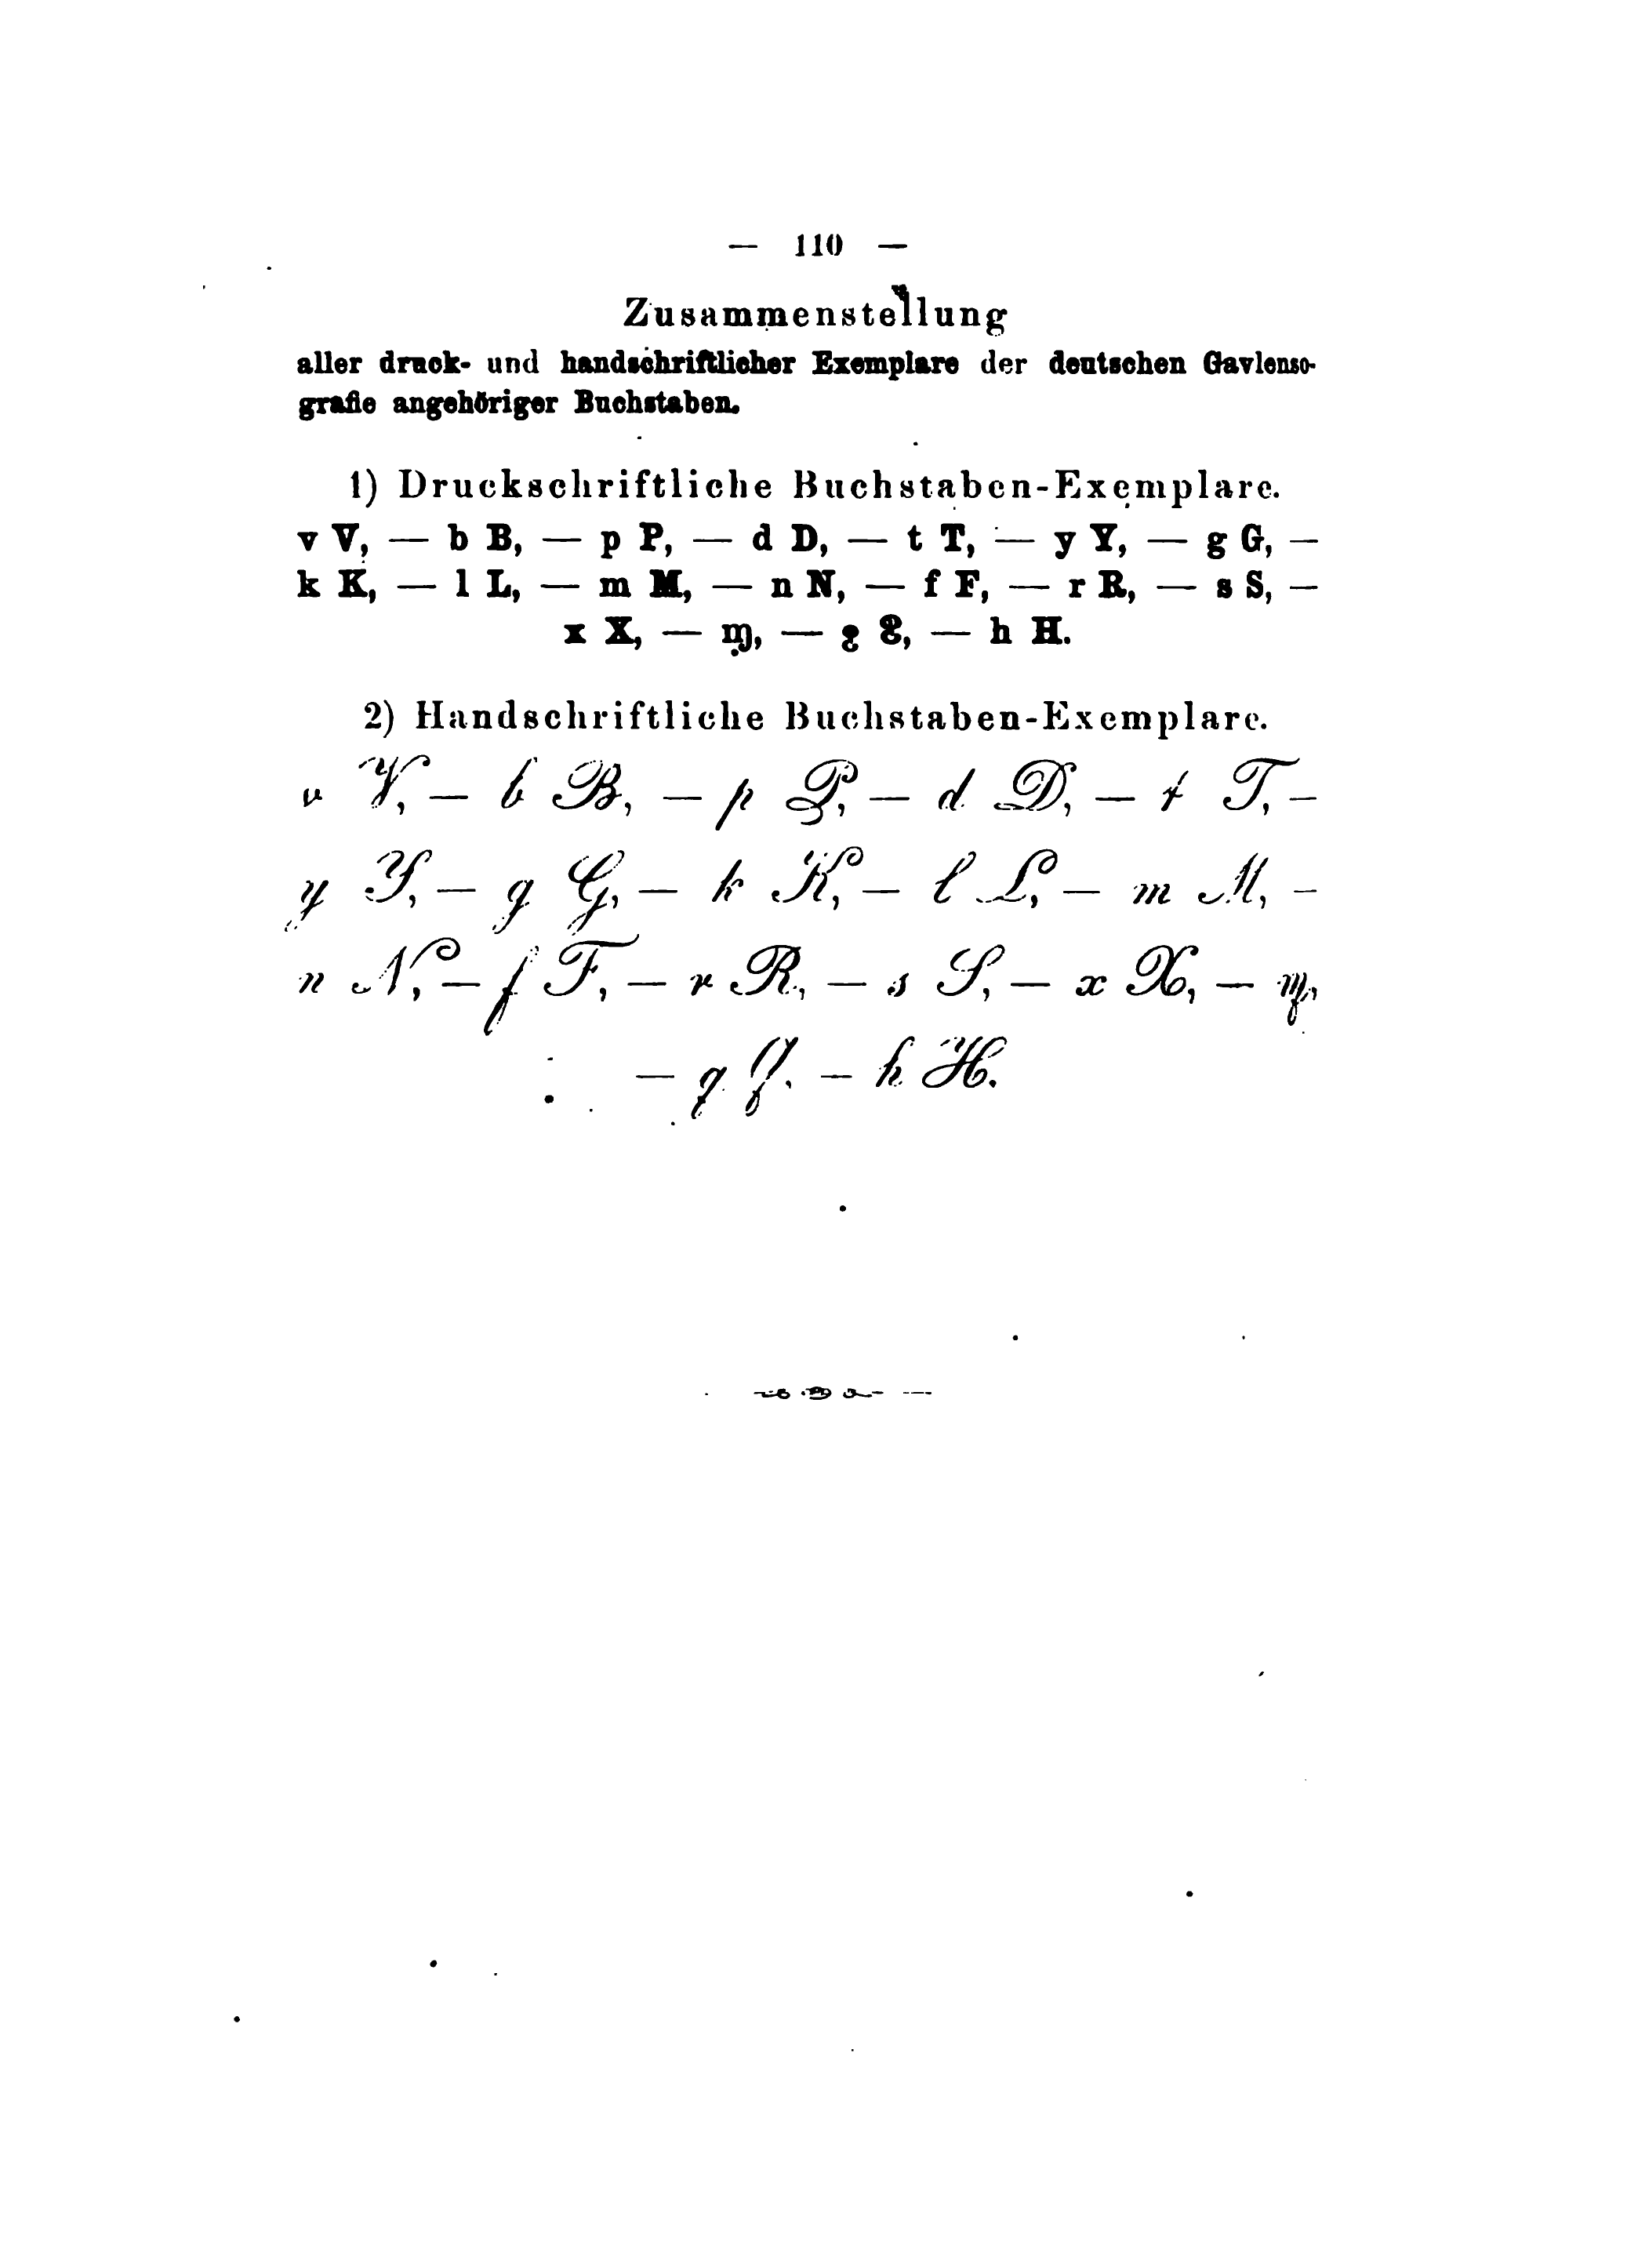 — 110 —
Zusammenstellung
aller druck- und handschriftlicher Exemplare der deutschen Gavlenso-
grafie angehöriger Buchstaben.
1) Druckschriftliche Buchstaben-Exemplare.
v V, — b B, — p P, — d D, — t T, — y Y, — g G, —
k K, — l L, — m M, — n N, — f F, — r R, — s S, —
x X, — — h H.
2) Handschriftliche Buchstaben-Exemplare.
v V, — b B, — p P, — d D, — t T, —
y Y, — g G, — k K, — l L, — m M, —
n N, — f F, — r R, — s S, — x X, —
— h H.